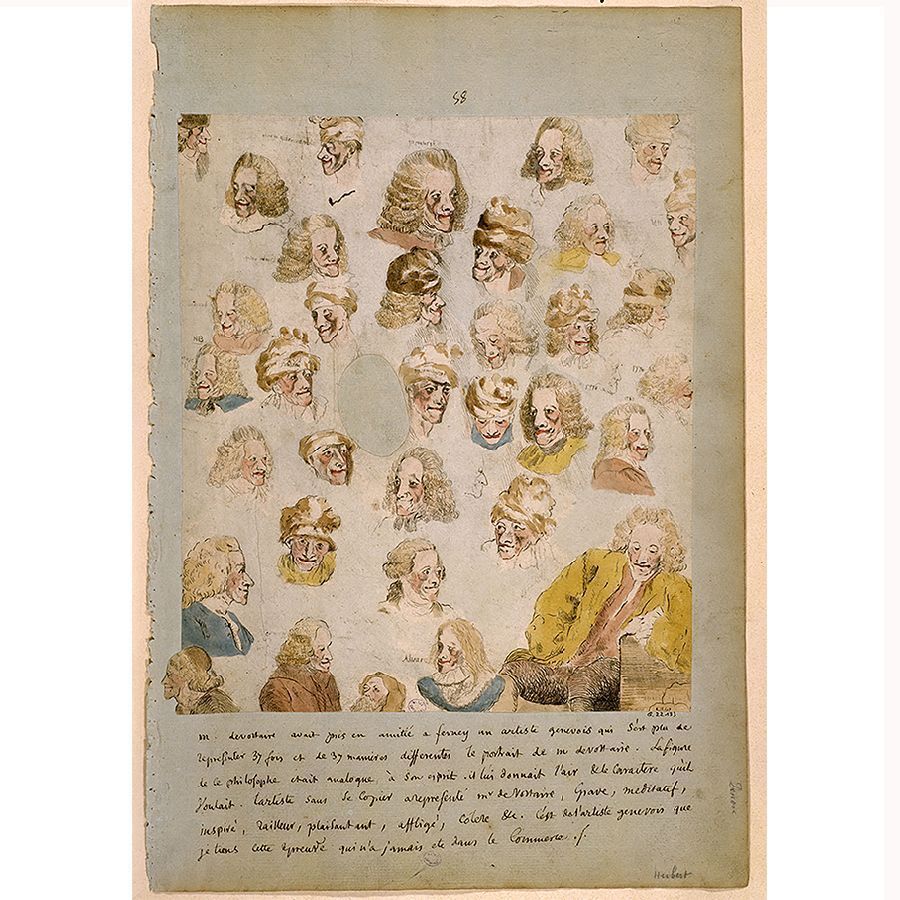 88
NB
1776
1776
m. devoltaire avait pris en amitié a ferney un artiste genevois qui s'est plu de
representer 37 fois et de 37 manieres differentes le portrait de m devoltaire. La figure
de ce philosophe etait analogue, à son esprit. il lui donnait l'air de le caractere qu'il
voulait. l'artiste sans se copier a representé mr de Voltaire, grave, meditatif,
inspiré, railleur, plaisantant, affligé, colere &c. C'est de l'artiste genevois que
je tiens cette epreuve qui n'a jamais eté dans le Commerce ./.
Herbert